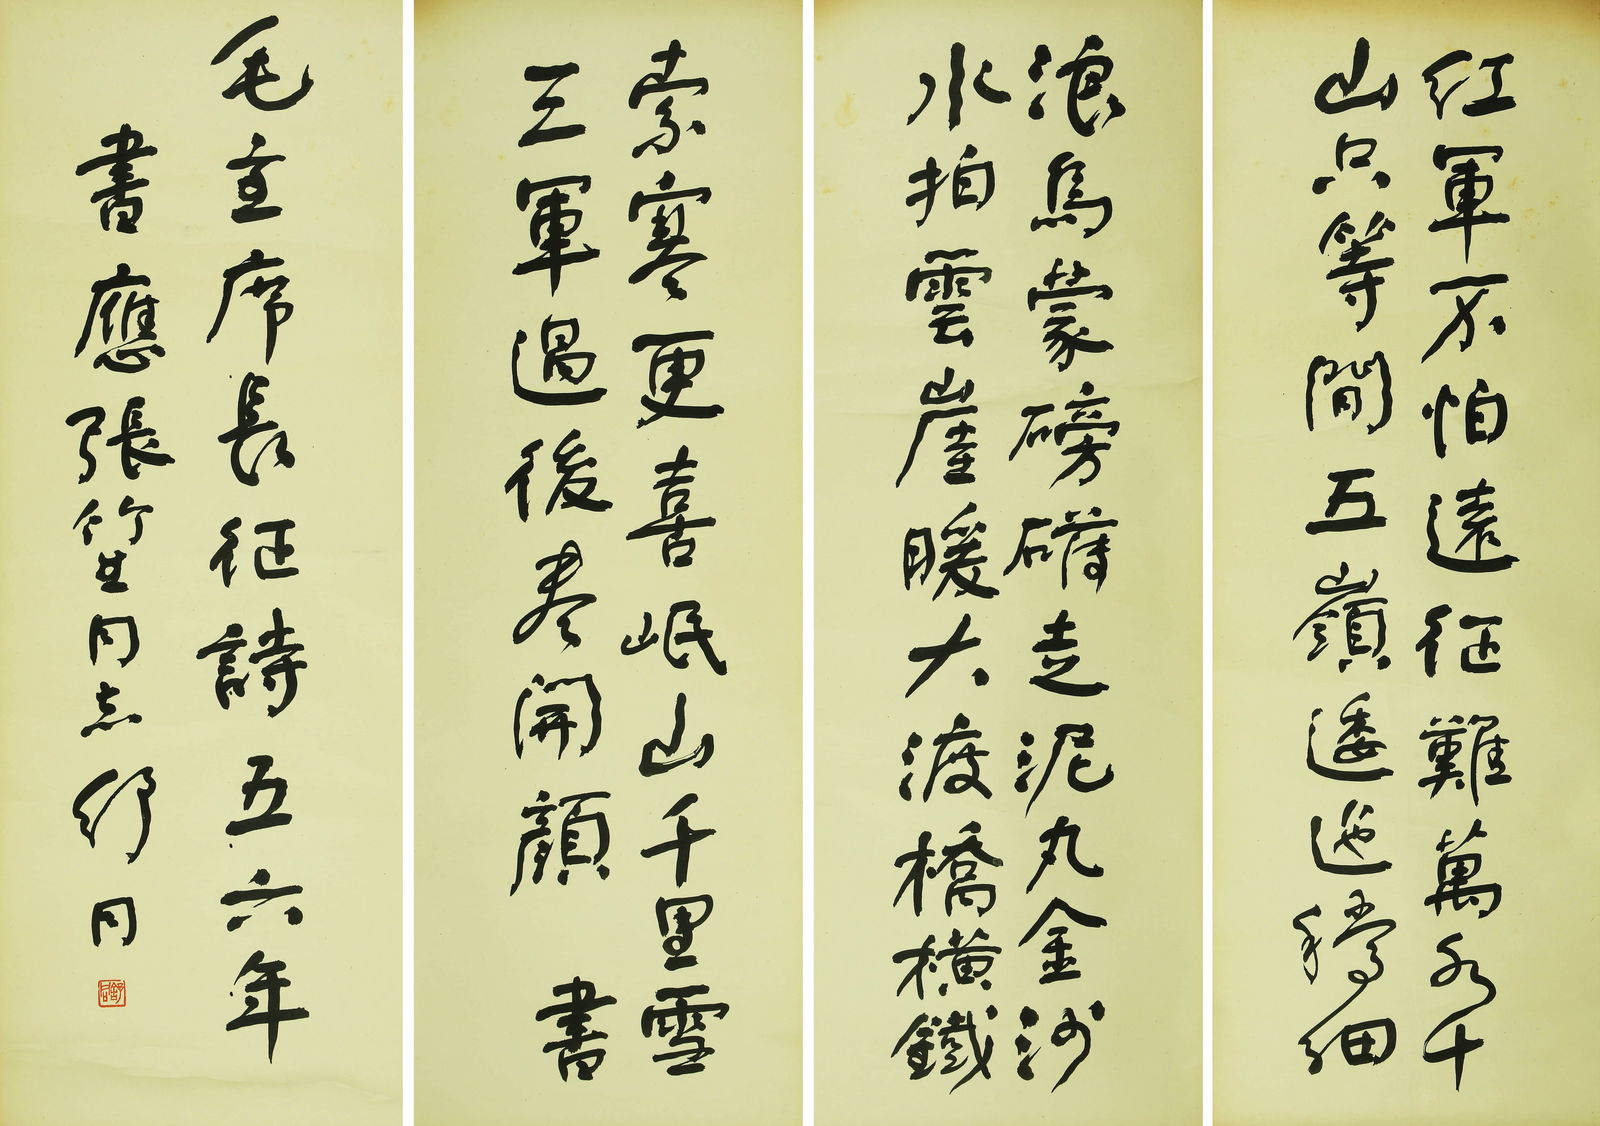 紅軍不怕遠征難萬水千
山只等閒五嶺逶迤騰細
浪烏蒙磅礴走泥丸金沙
水拍雲崖暖大渡橋橫鐵
索寒更喜岷山千里雪
三軍過後盡開顏 書
毛主席長征詩五六年
書應張竺生同志舒同
舒同